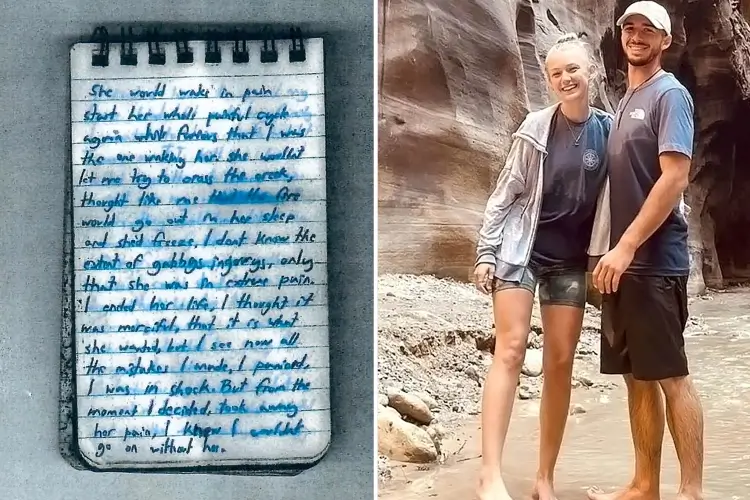 She would wake in pain
start her whole painful cycle
again while furious that I was
the one waking her. She wouldn't
let me try to cross the creek,
thought like me the fire
would go out in her sleep
and she'd freeze. I dont know the
extent of gabbys ingurys, only
that she was in extreme pain.
I ended her life, I thought it
was merciful, that it is what
she wanted, but I see now all
the mistakes I made. I panicked,
I was in shock. But from the
moment I decided, took away
her pain, I knew I wouldnt
go on without her.
THE
NORTH
FACE